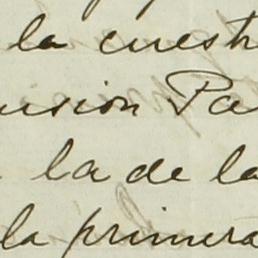 la cuest
usion Pa
la de la
la primera